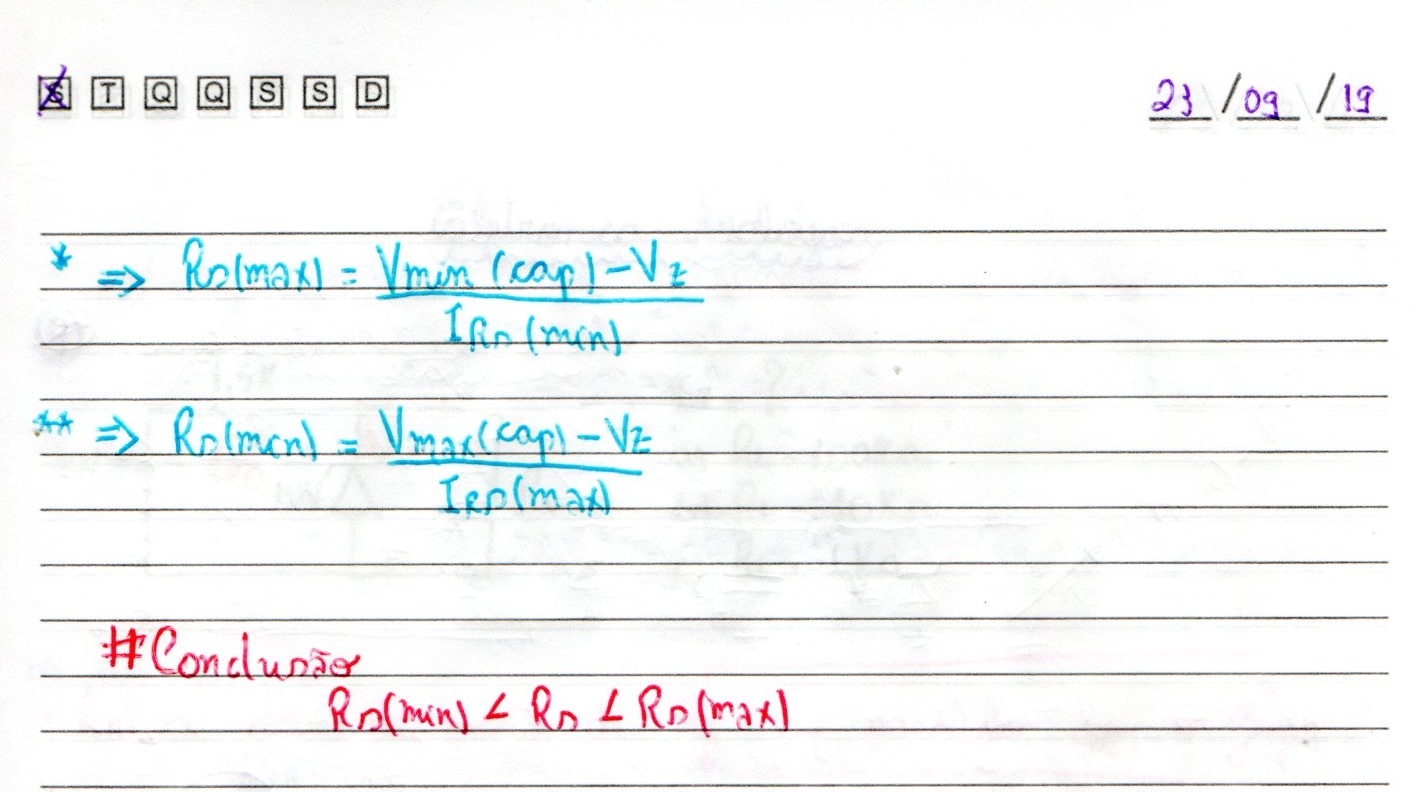 S T Q Q S S D
23/09/19
* => Rs(max) = Vmin (cap) - Vz
IRs (min)
** => Rs(min) = Vmax(cap) - Vz
IRs(max)
#Conclusão
Rs(min) < Rs < Rs(max)